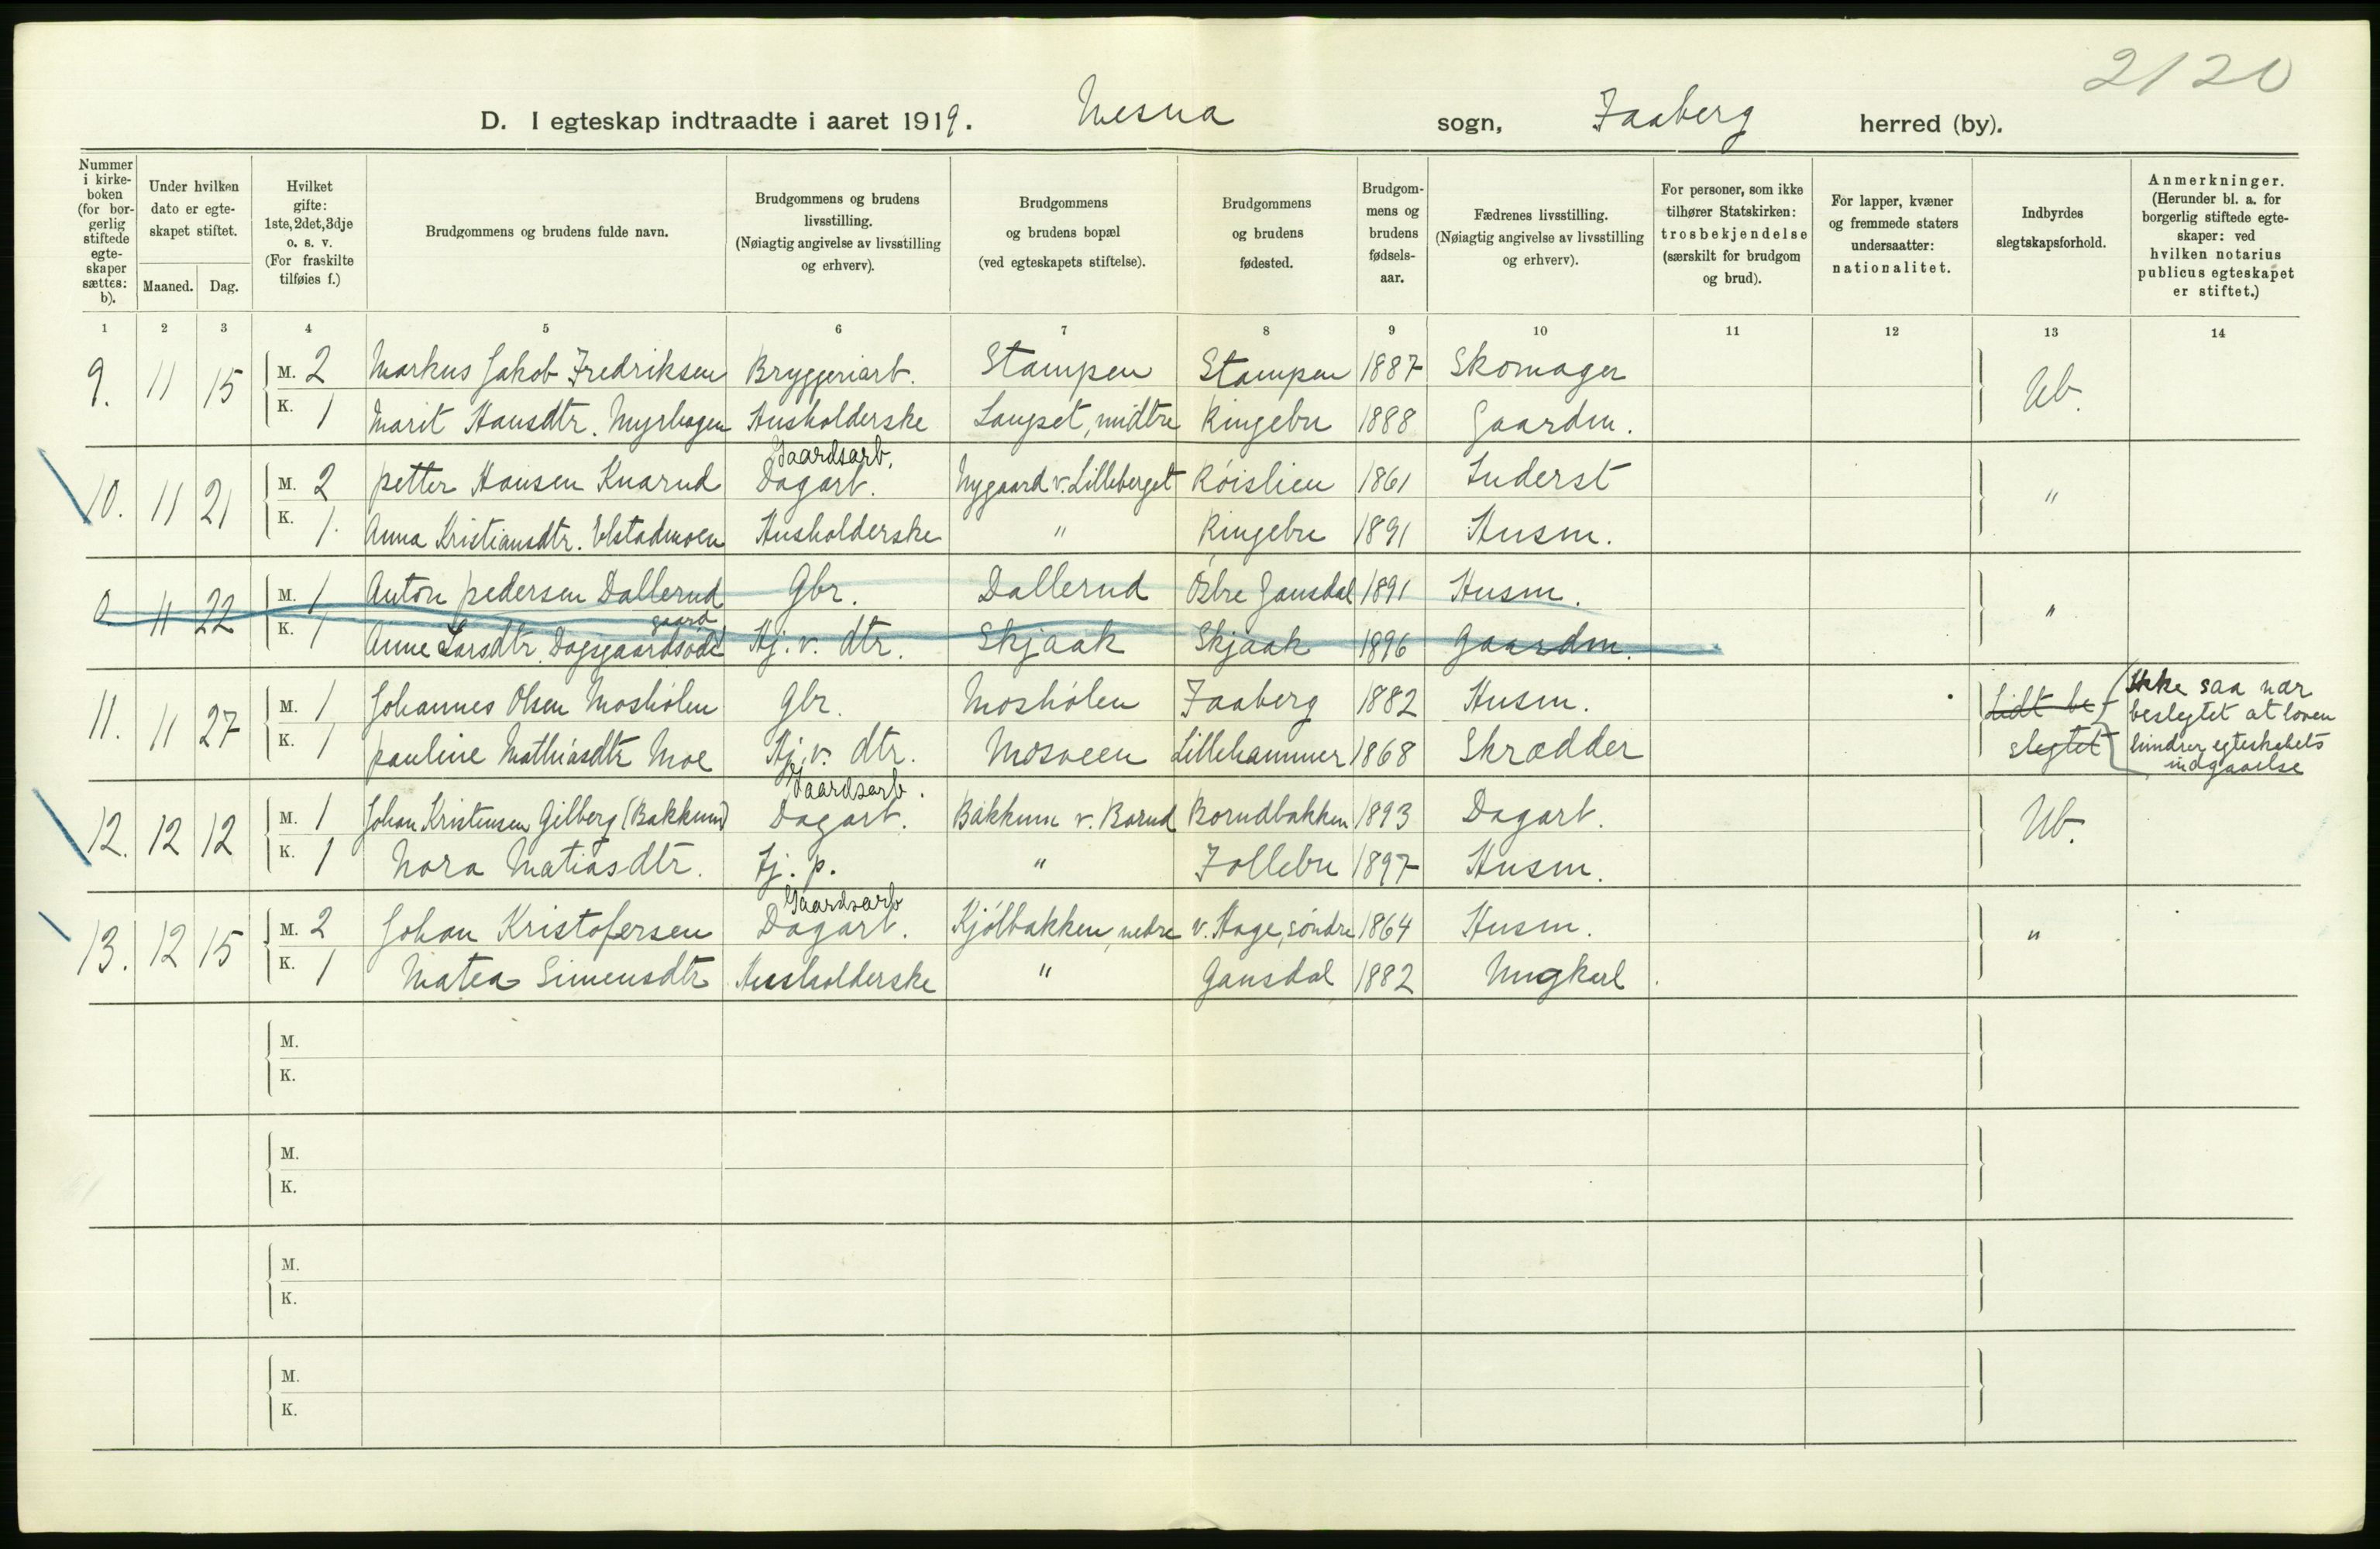 2120
D. I egteskap indtraadte i aaret 1919. Mesna sogn, Faaberg herred (by).
Nummer i kirkeboken (for borgerlig stiftede egteskaper sættes: b).
Under hvilken dato er egteskapet stiftet.
Maaned. Dag.
Hvilket gifte: 1ste, 2det, 3dje o. s. v. (For fraskilte tilføies f.)
Brudgommens og brudens fulde navn.
Brudgommens og brudens livsstilling. (Nøiagtig angivelse av livsstilling og erhverv).
Brudgommens og brudens bopæl (ved egteskapets stiftelse).
Brudgommens og brudens fødested.
Brudgommens og brudens fødselsaar.
Fædrenes livsstilling. (Nøiagtig angivelse av livsstilling og erhverv).
For personer, som ikke tilhører Statskirken: trosbekjendelse (særskilt for brudgom og brud).
For lapper, kvæner og fremmede staters undersaatter: nationalitet.
Indbyrdes slegtskapsforhold.
Anmerkninger. (Herunder bl. a. for borgerlig stiftede egteskaper: ved hvilken notarius publicus egteskapet er stiftet.)
1 2 3 4 5 6 7 8 9 10 11 12 13 14
9. 11 15 M. 2 Markus Jakob Fredriksen Bryggeriarb. Stampen Stampen 1887 Skomager Ub.
K. 1 Marit Hansdtr. Myrhagen Husholderske Laupset, midtre Ringebu 1888 Gaardm.
Gaardsarb.
10. 11 21 M. 2 Petter Hansen Knarud Dagarb. Nygaard v. Lilleberget Röislien 1861 Inderst "
K. 1. Anna Kristiansdtr. Elstadmoen Husholderske " Ringebu 1891 Husm.
0 11 22 M. 1 Anton Pedersen Dallerud Gbr. Dallerud Östre Gausdal 1891 Husm. "
gaard
K. 1 Anne Larsdtr. Dagsgaardsöde Hj. v. dtr. Skjaak Skjaak 1896 Gaardm.
11. 11 27 M. 1 Johannes Olsen Moshölen Gbr. Moshölen Faaberg 1882 Husm. Lidt be- Ikke saa nær
beslegtet at loven
K. 1 Pauline Mathiasdtr Moe Hj. v. dtr. Mosveen Lillehammer 1868 Skrædder slegtet hindrer egteskabets
indgaaelse
Gaardsarb.
12. 12 12 M. 1 Johan Kristensen Gilberg (Bakkum) Dagarb. Bakkum v. Borud Borudbakken 1893 Dagarb. Ub.
K. 1 Nora Matiasdtr. Tj. p. " Follebu 1897 Husm.
Gaardsarb
13. 12 15 M. 2 Johan Kristofersen Dagarb. Kjölbakken nedre v. Hage, söndre 1864 Husm. "
K. 1 Matea Simensdtr Husholderske " Gausdal 1882 Ungkarl
M.
K.
M.
K.
M.
K.
M.
K.